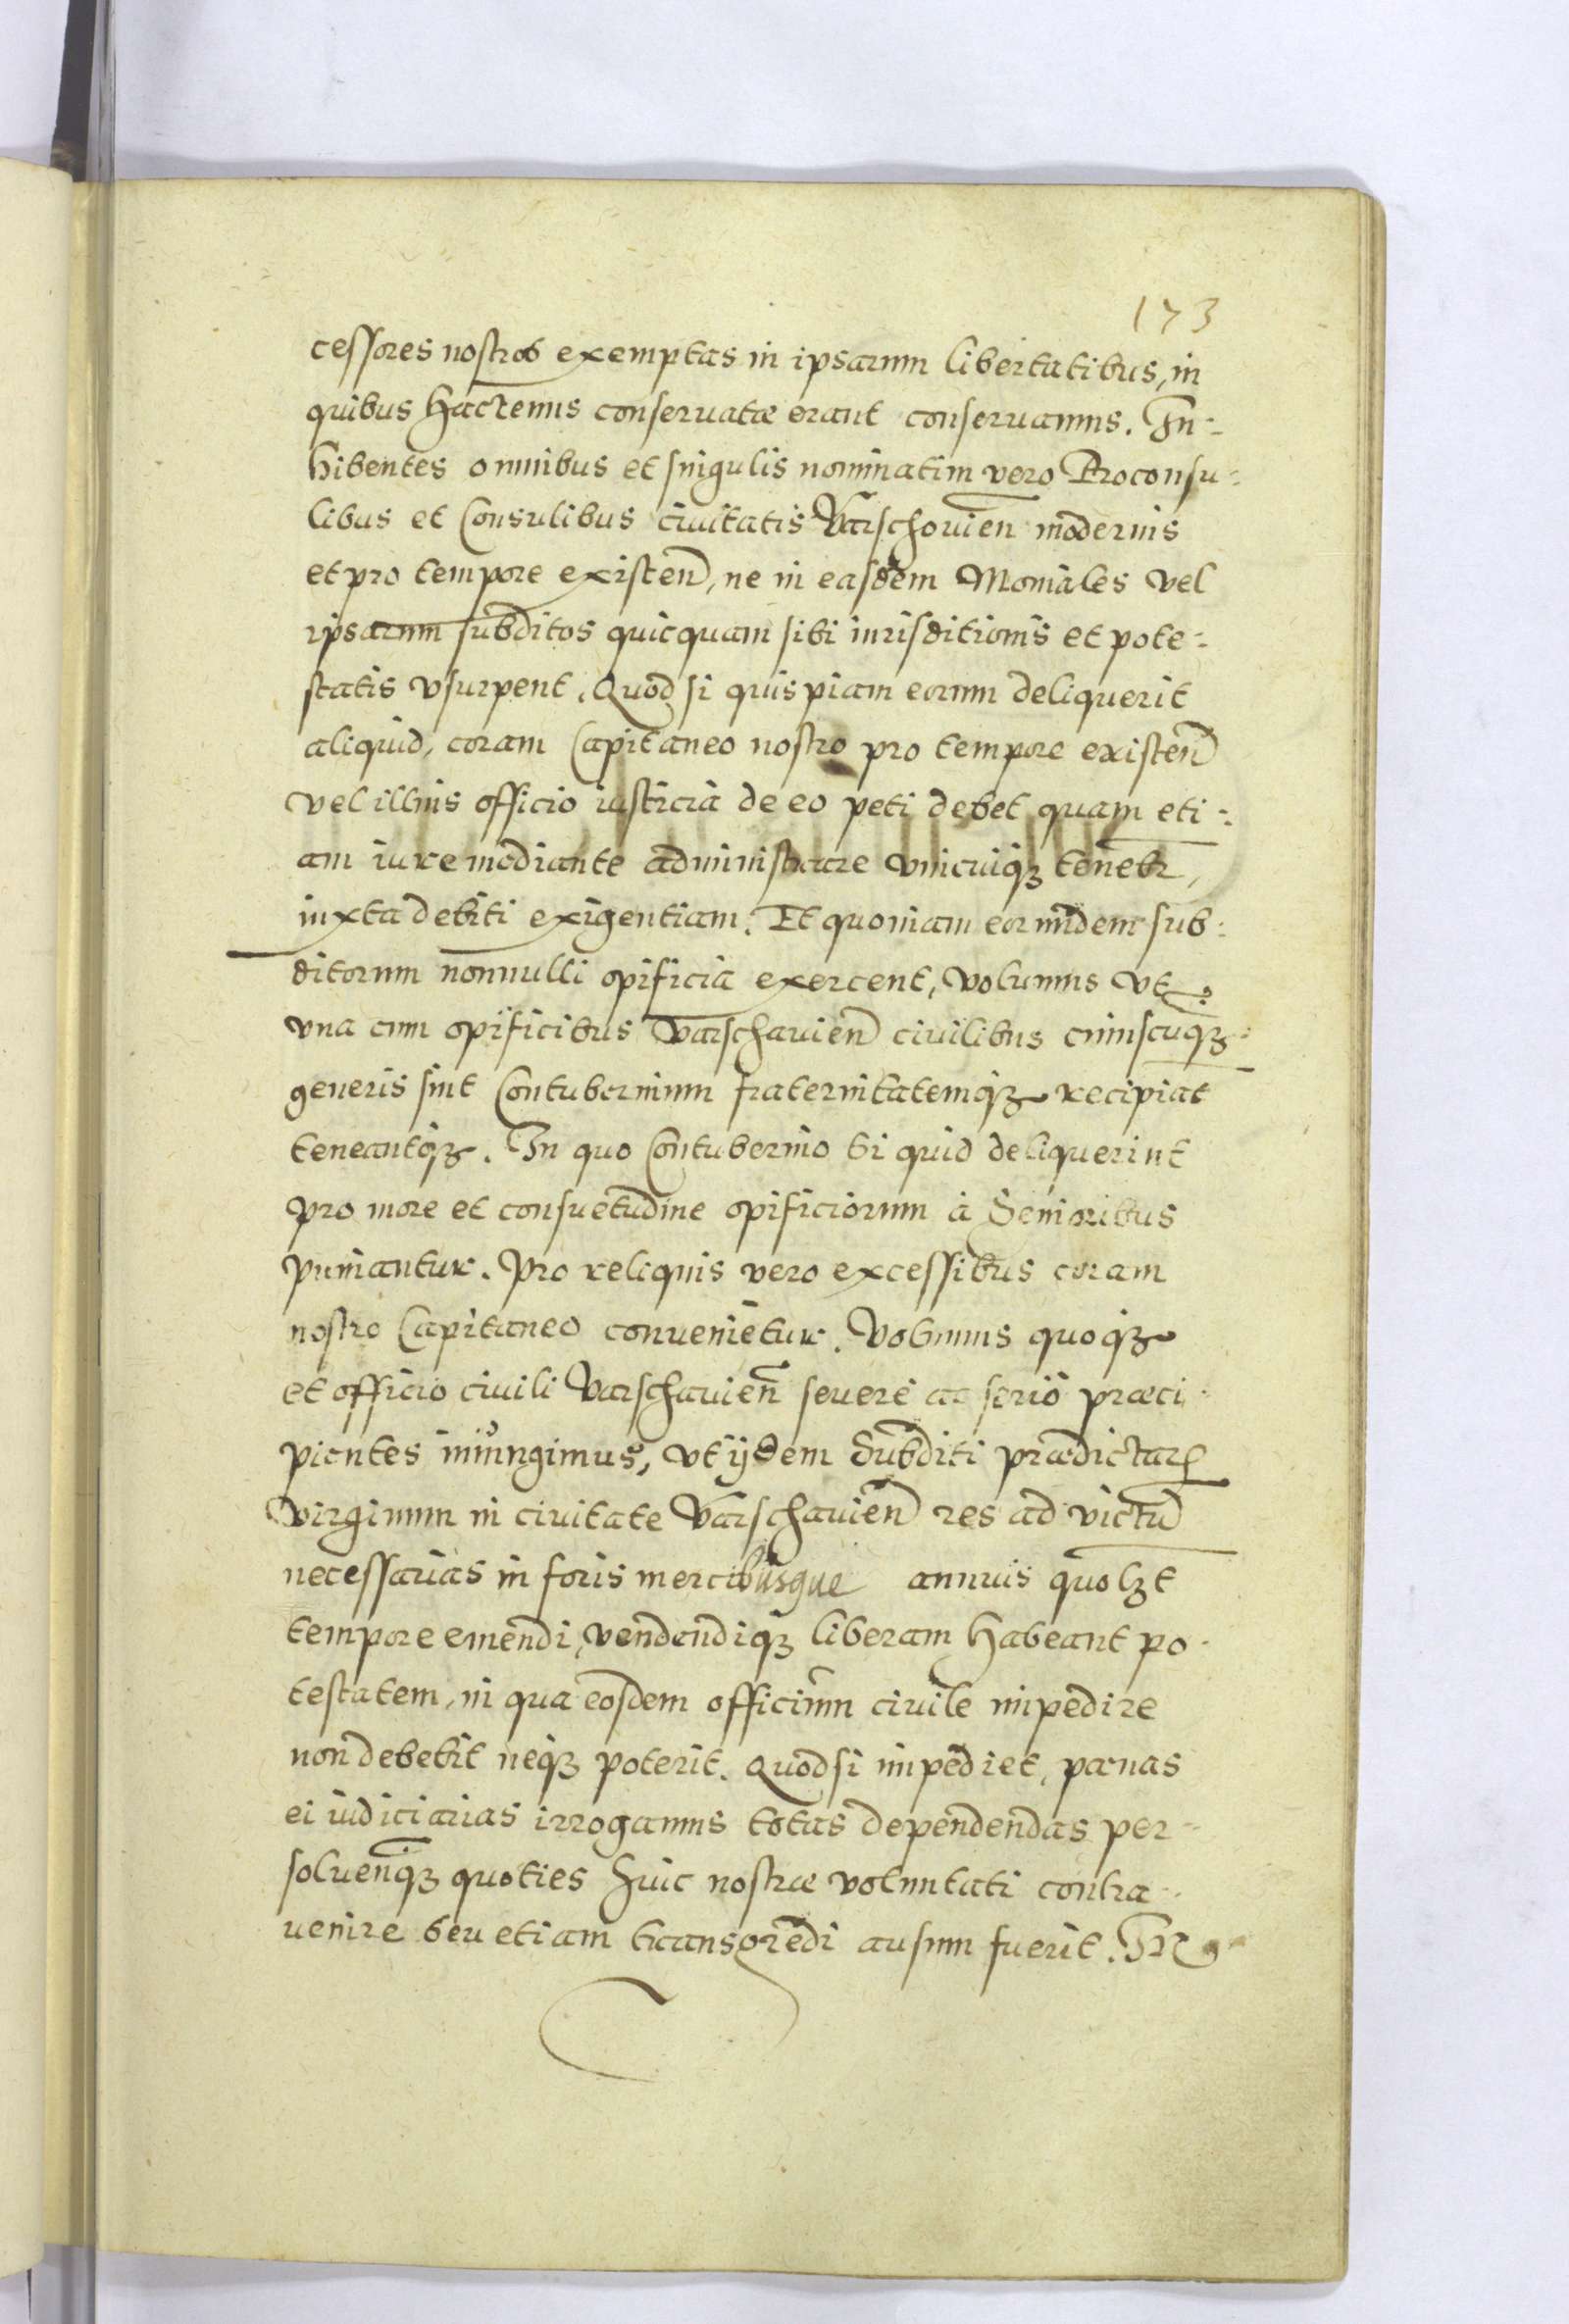 173
cessores nostros exemptas in ipsarum libertatibus, in
quibus hactenus conseruatæ erant conseruamus. In-
hibentes omnibus et singulis nominatim vero Proconsu-
libus et Consulibus ciuitatis Varschouien modernis
et pro tempore existen, ne in easdem Moniales vel
ipsarum subditos quicquam sibi iurisditionis et pote-
statis vsurpent. Quod si quispiam eorum deliquerit
aliquid, coram Capitaneo nostro pro tempore existen
vel illius officio iusticia de eo peti debet quam eti-
am iure mediante administrare vnicuiqȝ tenetr,
iuxta debiti exigentiam. Et quoniam eorundem sub-
ditorum nonnulli opificia exercent, volumus vt
vna cum opificibus Varschauien ciuilibus cuiuscuqȝ
generis sint Contubernium fraternitatemqȝ recipiat
teneantqȝ. In quo Contubernio si quid deliquerint
pro more et consuetudine opificiorum à Senioribus
puniantur. Pro reliquis vero excessibus coram
nostro Capitaneo conuenietur. Volumus quoqȝ
et officio ciuili Varschauien seuerè ac seriò præci-
pientes iniungimus, vt ijdem Subditi prædictarꝝ
virginum in ciuitate Varschauien res ad victū
necessarias in foris mercibusque annuis quolȝt
tempore emendi, vendendiqȝ liberam habeant po-
testatem, in qua eosdem officium ciuile impedire
non debebit neqȝ poterit. Quod si impediet, pænas
ei iudiciarias irrogamus totas dependendas per-
soluenqȝ quoties huic nostræ voluntati contra-
uenire seu etiam transgredi ausum fuerit. In